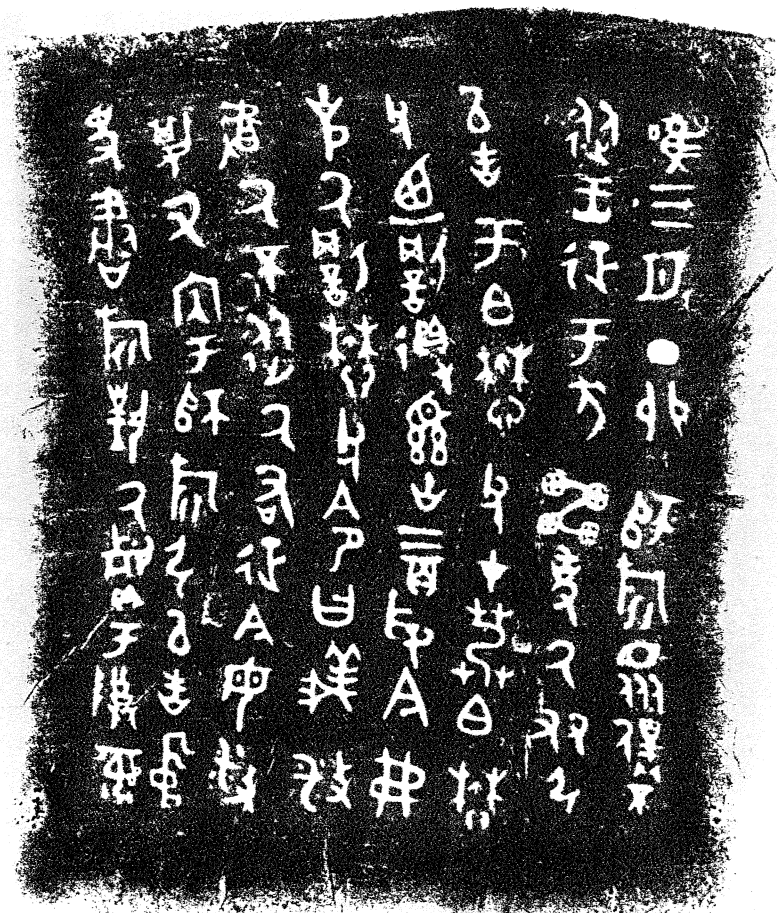 唯三月丁卯師旂眾僕不
從王征于方雷使厥友引
以告于白懋父在艿白懋
父迺罰得古三百寽今弗
克厥罰懋父令曰義播
厥不從厥右征今毋播
其又內于師旂引以告中
史書旂對厥于尊彝